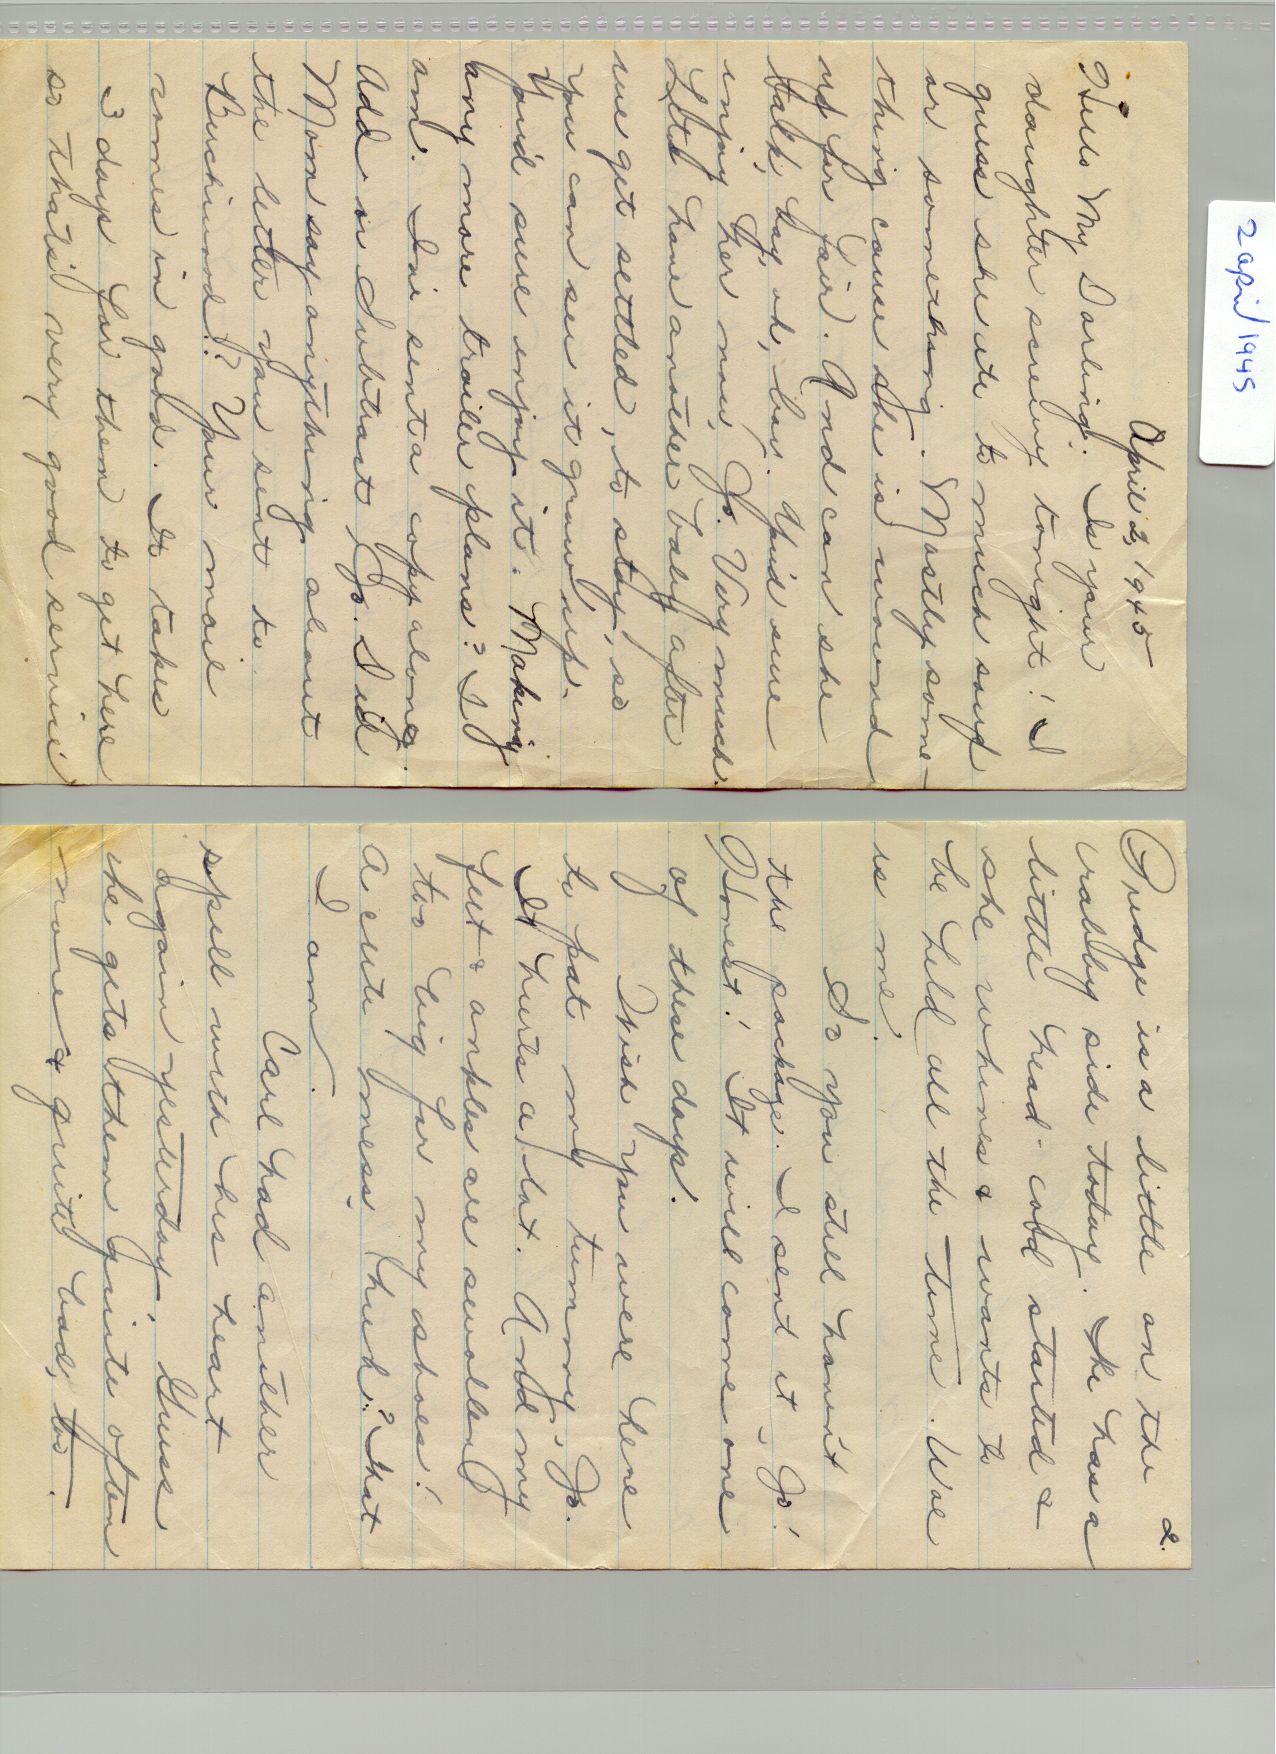 2 april 1945
April 2, 1945
Hello My Darling. Is your
daughter screwy tonight! I
guess she ate to much soup
or something. Mostly some-
thing cause she is wound
up for fair. And can she
talk, boy oh, boy. You'd sure
enjoy her now, Jo. Very much.
Let's have another baby after
we get settled, to stay, so
you can see it grow up.
You'd sure enjoy it. Making
any more trailer plans? I
am. I've sent a copy along.
Add or Subtract, Jo. Did
Mom say anything about
the letter you sent to
Buchiund? Your mail
comes in good. It takes
3 days for them to get here
so that's very good service.
2.
Pudge is a little on the
crabby side today. She has a
little head-cold started &
she whines & wants to
be held all the time. Woe
is me.
So you still haven't
the package. I sent it, Jo!
Honest! It will come one
of these days.
Wish you were here
to pat my tummy, Jo.
It hurts a lot. And my
feet & ankles are swollen
too big for my shoes!
A cute mess, huh? That
I am.
Carl had another
spell with his heart
again yesterday. Guess
he gets them quite often
now & quite bad, too.